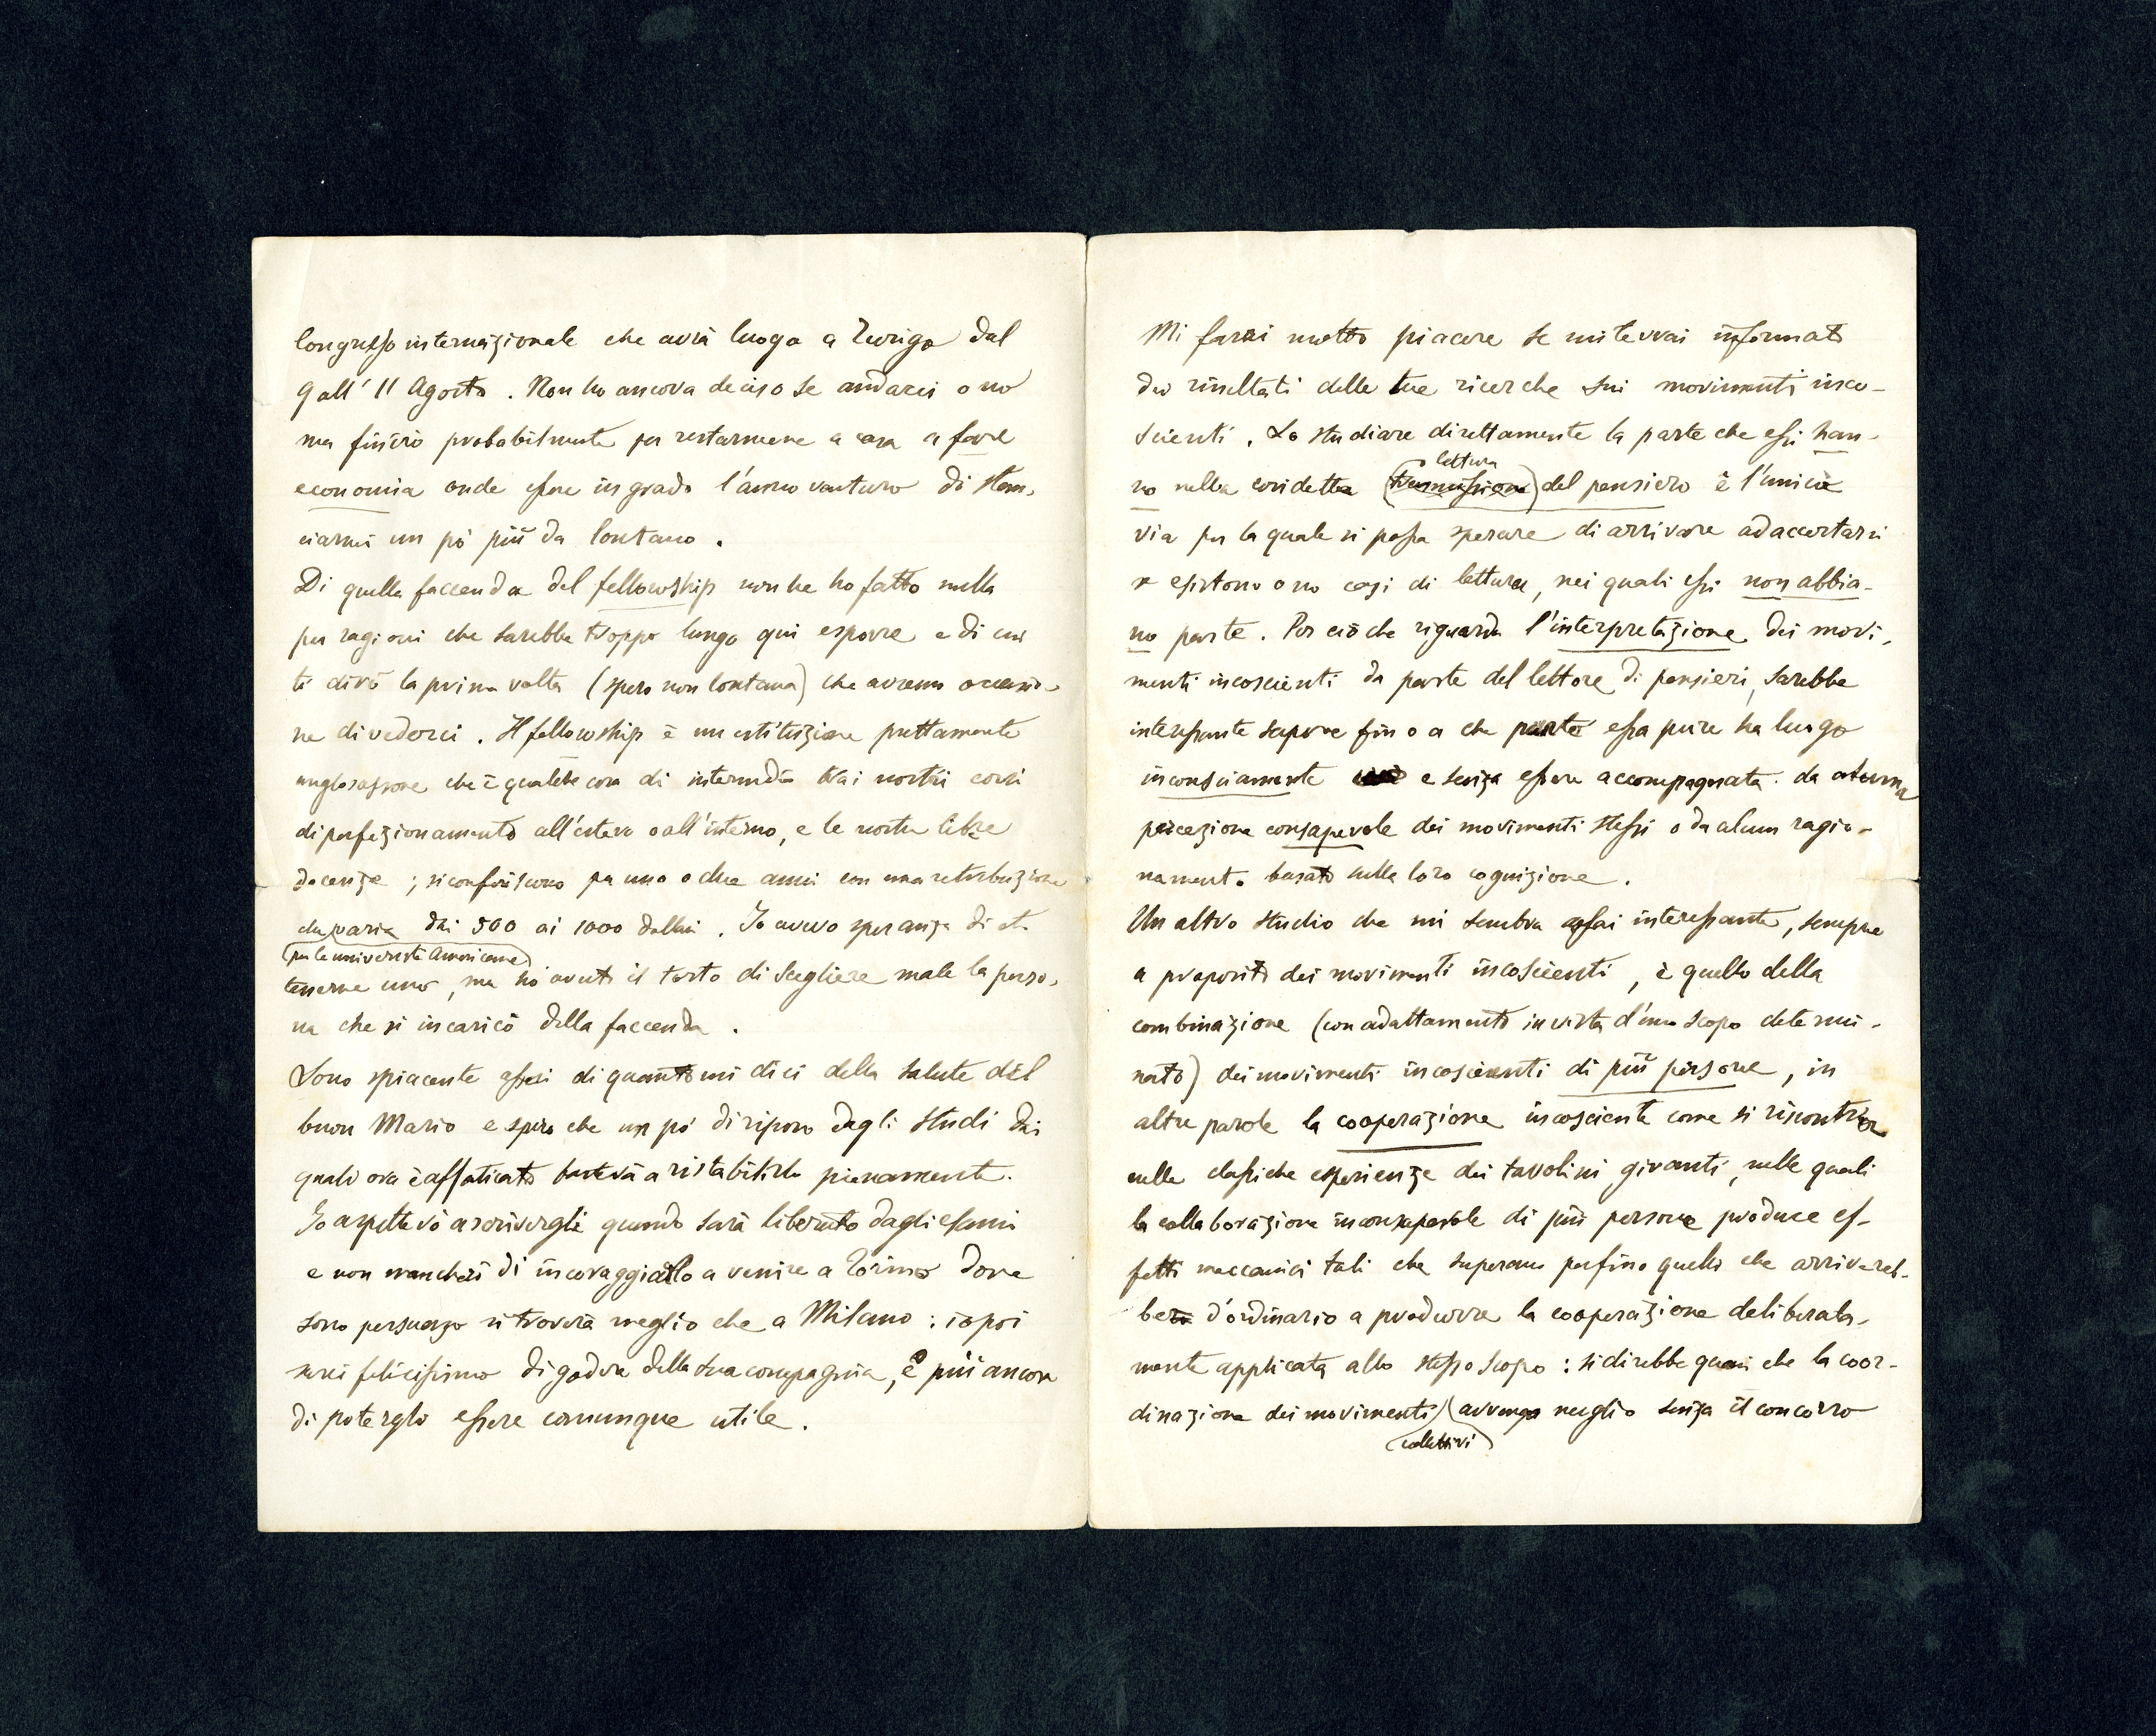 Congresso internazionale che avrà luogo a Zurigo dal
9 all' 11 Agosto. Non ho ancora deciso se andarci o no
ma finirò probabilmente per restarmene a casa a fare
economia onde essere in grado l'anno venturo di slan-
ciarmi un pò più da lontano.
Di quella faccenda del fellowship non ne ho fatto nulla
per ragioni che sarebbe troppo lungo qui esporre e di cui
ti dirò la prima volta (spero non lontana) che avremo occasio-
ne di vederci. Il fellowship è un istituzione prettamente
anglosassone che è qualche cosa di intermedio tra i nostri corsi
di perfezionamento all'estero o all'interno, e le nostre libere
docenze; si conferiscono per uno o due anni con una retribuzione
che varia dai 500 ai 1000 dollari. Io avevo speranza di ot-
(per le università Americane)
tenerne uno, ma ho avuto il torto di scegliere male la perso-
na che si incaricò della faccenda.
Sono spiacente assai di quanto mi dici della salute del
buon Mario e spero che un pó di riposo dagli studi dai
quali ora è affaticato basterà a ristabilirlo pienamente.
Io aspettavo a scrivergli quando sarà liberato dagli esami
e non mancherò di incoraggiarlo a venire a Torino dove
sono persuaso si troverà meglio che a Milano: io poi
sarei felicissimo di godere della sua compagnia, e più ancora
di potergli essere comunque utile.
Mi farai molto piacere se mi terrai informato
dei risultati delle tue ricerche sui movimenti inco-
scienti. Lo studiare direttamente la parte che essi han-
lettura
no nella cosidetta (trasmissione) del pensiero è l'unica
via per la quale si possa sperare di arrivare ad accertarsi
se esistono o no casi di lettura, nei quali essi non abbia-
no parte. Per ciò che riguarda l'interpretazione dei movi-
menti incoscienti da parte del lettore di pensieri, sarebbe
interessante sapere fino a che punto essa pure ha luogo
inconsciamente e senza essere accompagnata da alcuna
percezione consapevole dei movimenti stessi o da alcun ragio-
namento basato sulla loro cognizione.
Un altro studio che mi sembra assai interessante, sempre
a proposito dei movimenti incoscienti, è quello della
combinazione (con adattamento in vista d'uno scopo determi-
nato) dei movimenti incoscienti di più persone, in
altre parole la cooperazione incosciente come si riscontra
nelle classiche esperienze dei tavolini giranti, nelle quali
la collaborazione inconsapevole di più persone produce ef-
fetti meccanici tali che superano perfino quelli che arrivereb-
be d'ordinario a produrre la cooperazione deliberata-
mente applicata allo stesso scopo: si direbbe quasi che la coor-
dinazione dei movimenti avvenga meglio senza il concorso
(collettivi)